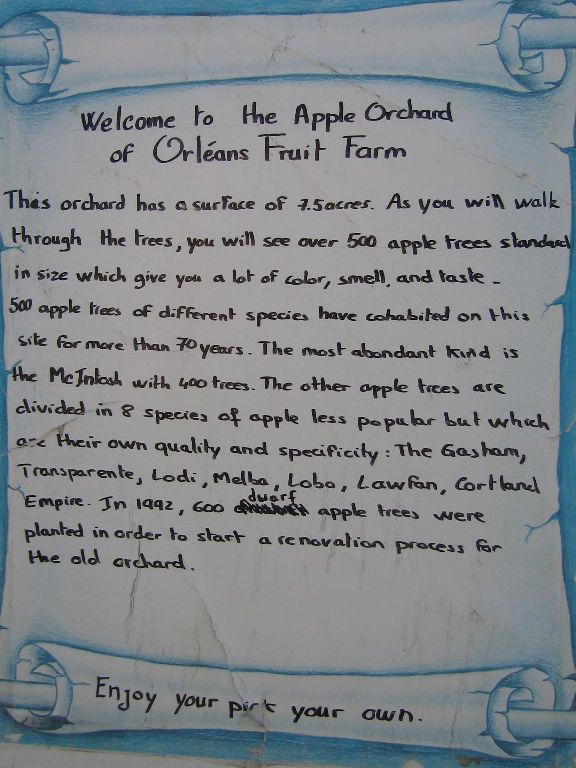 Welcome to the Apple Orchard
of Orléans Fruit Farm
This orchard has a surface of 7.5 acres. As you will walk
through the trees, you will see over 500 apple trees standard
in size which give you a lot of color, smell, and taste -
500 apple trees of different species have cohabited on this
site for more than 70 years. The most abondant kind is
the McIntosh with 400 trees. The other apple trees are
divided in 8 species of apple less popular but which
are their own quality and specificity : The Gasham,
Transparente, Lodi, Melba, Lobo, Lawfan, Cortland
Empire. In 1992, 600 dwarf apple trees were
planted in order to start a renovation process for
the old orchard.
Enjoy your pick your own.